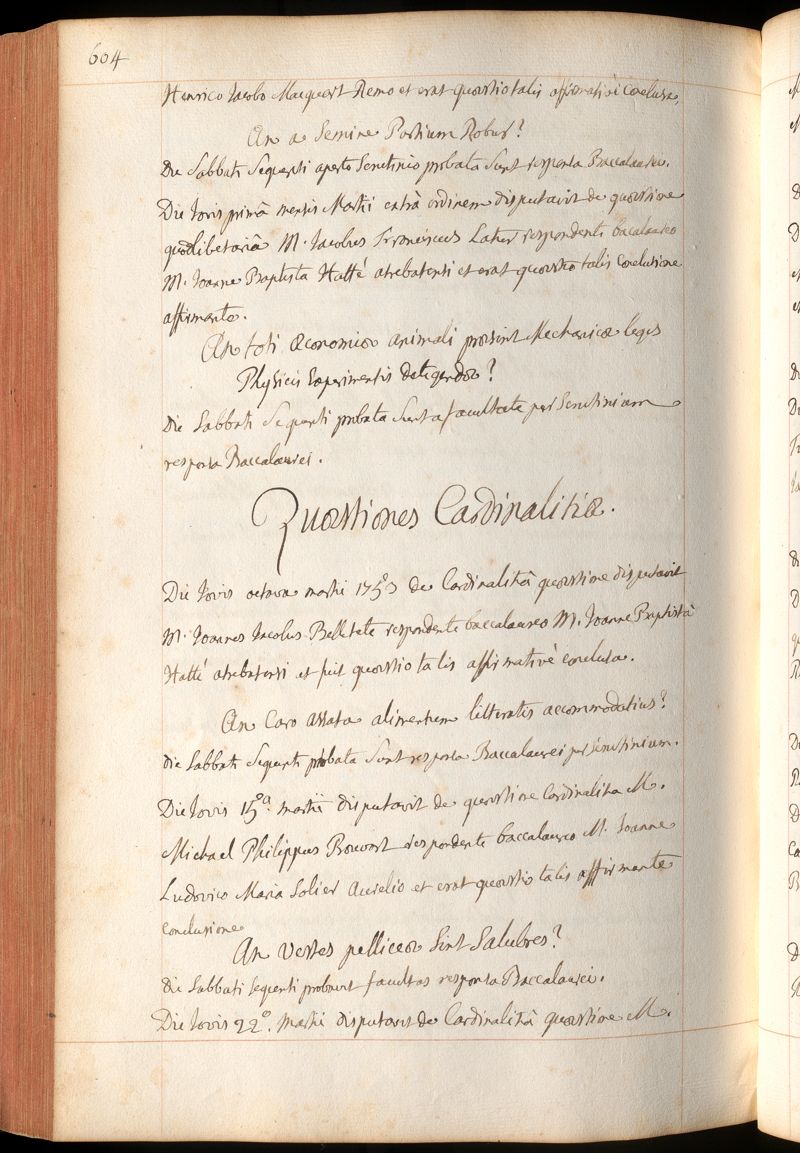 604
Henrico Jacobo Macquart Remo et erat quæstio talis affirmativè conclusa,
An a Semine Partium Robur?
Die Sabbati Sequenti aperto Scrutinio probata Sunt responsa Baccalaurei.
Die Jovis primâ mensis Martii extrà ordinem disputavit de quæstione
quodlibetariâ M. Jacobus Franciscus Latier respondente baccalaureo
M. Joanne Baptista Hatté atrebatensi et erat quæstio talis conclusione
affirmante.
An toti œconomiæ animali prosint Mechanicæ leges
Physicis Experimentis detegendæ?
Die Sabbati Sequenti probata Sunt a facultate per Scrutinium
responsa Baccalaurei.
Quæstiones Cardinalitiæ.
Die Jovis octava martii 1753 de Cardinalitiâ quæstione disputavit
M. Joannes Jacobus Belletete respondente baccalaureo M. Joanne Baptistâ
Hatté atrebatensi et fuit quæstio talis affirmativè conclusa.
An Caro assata alimentum litteratis accommodatius?
die Sabbati Sequenti probata Sunt responsa Baccalaurei per scrutinium.
Die Jovis 15ª. martii disputavit de quæstione Cardinalitia M.
Michael Philippus Bouvart respondente baccalaureo M. Joanne
Ludovico Maria Solier Aurelio et erat quæstio talis affirmante
conclusione
An vestes pelliceæ Sint Salubres?
die Sabbati Sequenti probavit facultas responsa Baccalaurei.
Die Jovis 22º. martii disputavit de Cardinalitiâ quæstione M.